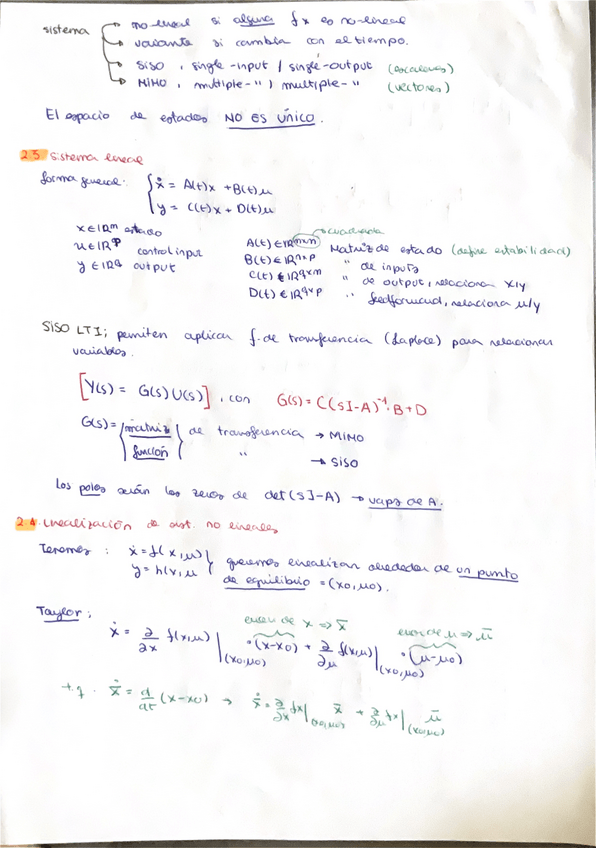 sistema
no-lineal si alguna fx es no-lineal
variante si cambia con el tiempo.
SISO, single-input / single-output (escalares)
MIMO, multiple-" / multiple-" (vectores)
El espacio de estados NO ES ÚNICO.
2.3 Sistema lineal
forma general: ẋ = A(t)x + B(t)u
y = C(t)x + D(t)u
cuadrada
x ∈ ℝⁿ estado
u ∈ ℝᵖ control input
y ∈ ℝq output
A(t) ∈ ℝⁿˣⁿ Matriz de estado (define estabilidad)
B(t) ∈ ℝⁿˣᵖ " de inputs
C(t) ∈ ℝqxn " de output, relaciona x/y
D(t) ∈ ℝqxp " feedforward, relaciona u/y
SISO LTI; permiten aplicar f. de transferencia (Laplace) para relacionar
variables.
[Y(s) = G(s)U(s)], con G(s) = C(sI-A)⁻¹·B+D
G(s) = matriz de transferencia → MIMO
función " → SISO
Los polos serán los zeros de det(sI-A) → vaps de A.
2.4 Linealización de sist. no lineales
Tenemos: ẋ = f(x,u)
y = h(x,u
queremos linealizar alrededor de un punto
de equilibrio = (x0,u0).
Taylor:
error de x ⇒ x̄
error de u ⇒ ū
ẋ = ∂/∂x f(x,u)|(x0,u0) ·(x-x0) + ∂/∂u f(x,u)|(x0,u0) ·(u-u0)
t.q. x̄̇ = d/dt (x-x0) → x̄̇ = ∂/∂x fx|(x0,u0) x̄ + ∂/∂u fx|(x0,u0) ū